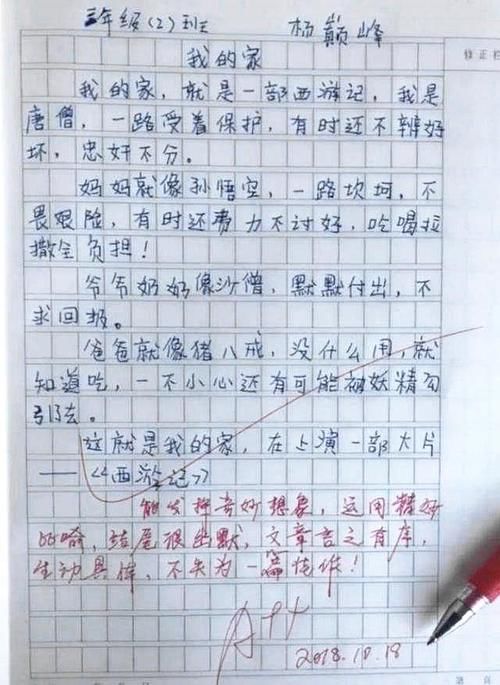 三年级(2)班 杨巅峰
修正栏
我的家
我的家，就是一部西游记，我是
唐僧，一路受着保护，有时还不辨好
坏，忠奸不分。
妈妈就像孙悟空，一路坎坷，不
畏艰险，有时还费力不讨好，吃喝拉
撒全负担！
爷爷奶奶像沙僧，默默付出，不
求回报。
爸爸就像猪八戒，没什么用，就
知道吃，一不小心还有可能被妖精勾
引去。
这就是我的家，在上演一部大片
——《西游记》
能发挥奇妙想象，运用精妙
的喻，结尾很幽默，文章言之有序，
生动具体，不失为一篇佳作！
A++
2018.10.18
第 页